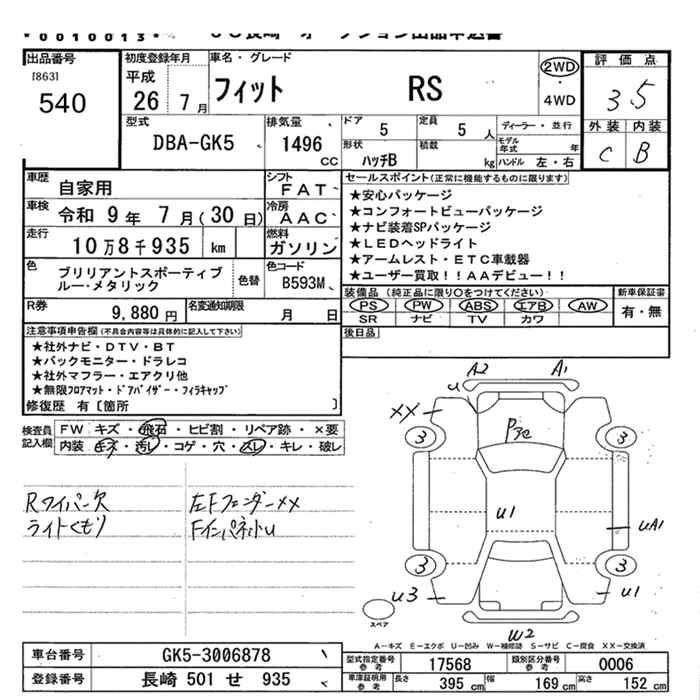 *0010013*
出品番号
[863]
540
初度登録年月
平成
26 7月
車名・グレード
フィット RS
2WD
・
4WD
評価点
3.5
外装 内装
C B
型式
DBA-GK5
排気量
1496
CC
ドア
5
定員
5人
ディーラー・並行
モデル年式 年
形状
ハッチB
積載
kg
ハンドル 左・右
車歴
自家用
シフト
FAT
車検
令和 9年 7月(30日)
冷房
AAC
走行
10万8千935 km
燃料
ガソリン
色
ブリリアントスポーティブ
ルー・メタリック
色替
色コード
B593M
R券
9,880円
名変通知期限
月 日
セールスポイント(正常に機能するものに限ります)
★安心パッケージ
★コンフォートビューパッケージ
★ナビ装着SPパッケージ
★LEDヘッドライト
★アームレスト・ETC車載器
★ユーザー買取!!AAデビュー!!
装備品(純正品に限り○をつけてください)
PS PW ABS エアB AW
SR ナビ TV カワ
新車保証書
有・無
後日品
注意事項申告欄(不具合内容等は具体的に記入して下さい)
★社外ナビ・DTV・BT
★バックモニター・ドラレコ
★社外マフラー・エアクリ他
★無限フロアマット・ドアバイザー・フィラキャップ
修復歴 有[箇所 ]
検査員
記入欄
FW キズ・飛石・ヒビ割・リペア跡・×要
内装 キズ・汚レ・コゲ・穴・スレ・キレ・破レ
Rワイパー欠
ライトくもり
左FフェンダーXX
Fインパネ小U
A2 A1
U
XX
Pアセ
3 3
U1
UA1
3 3
U3 U1
スペア
W2
A-キズ E-エクボ U-凹み W-補修跡 S-サビ C-腐食 XX-交換済
車台番号
GK5-3006878
登録番号
長崎 501 せ 935
型式指定番号
参考
17568
類別区分番号
参考
0006
車庫証明用
参考
長さ
395 cm
幅
169 cm
高さ
152 cm